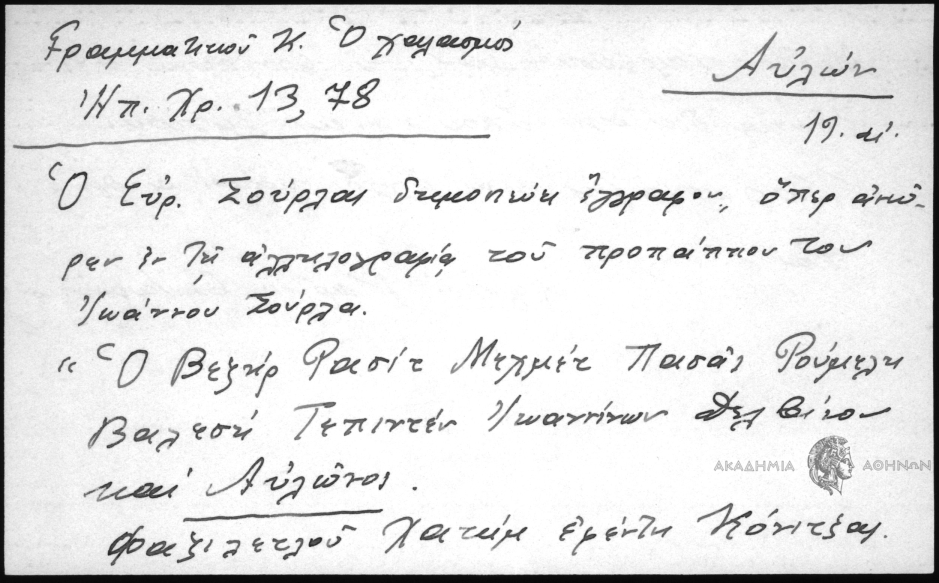 Γραμματικοῦ Κ. Ὁ χαλασμός
Αὐλών
Ἠπ. Χρ. 13, 78
19. αἰ.
Ὁ Εὐρ. Σούρλας δημοσιεύει ἔγγραφον, ὅπερ ἀνεῦ-
ρεν ἐν τῇ ἀλληλογραφίᾳ τοῦ προπάππου του
Ἰωάννου Σούρλα.
"Ὁ Βεζὴρ Ρασὶτ Μεχμὲτ Πασᾶς Ρούμελη
Βαλεσὴ Τεπιντὲν Ἰωαννίνων Δελβίνου
καὶ Αὐλῶνος.
Φαζιλετλοῦ Χατὴμ ἐφέντη Κόνιτζας.
ΑΚΑΔΗΜΙΑ ΑΘΗΝΩΝ